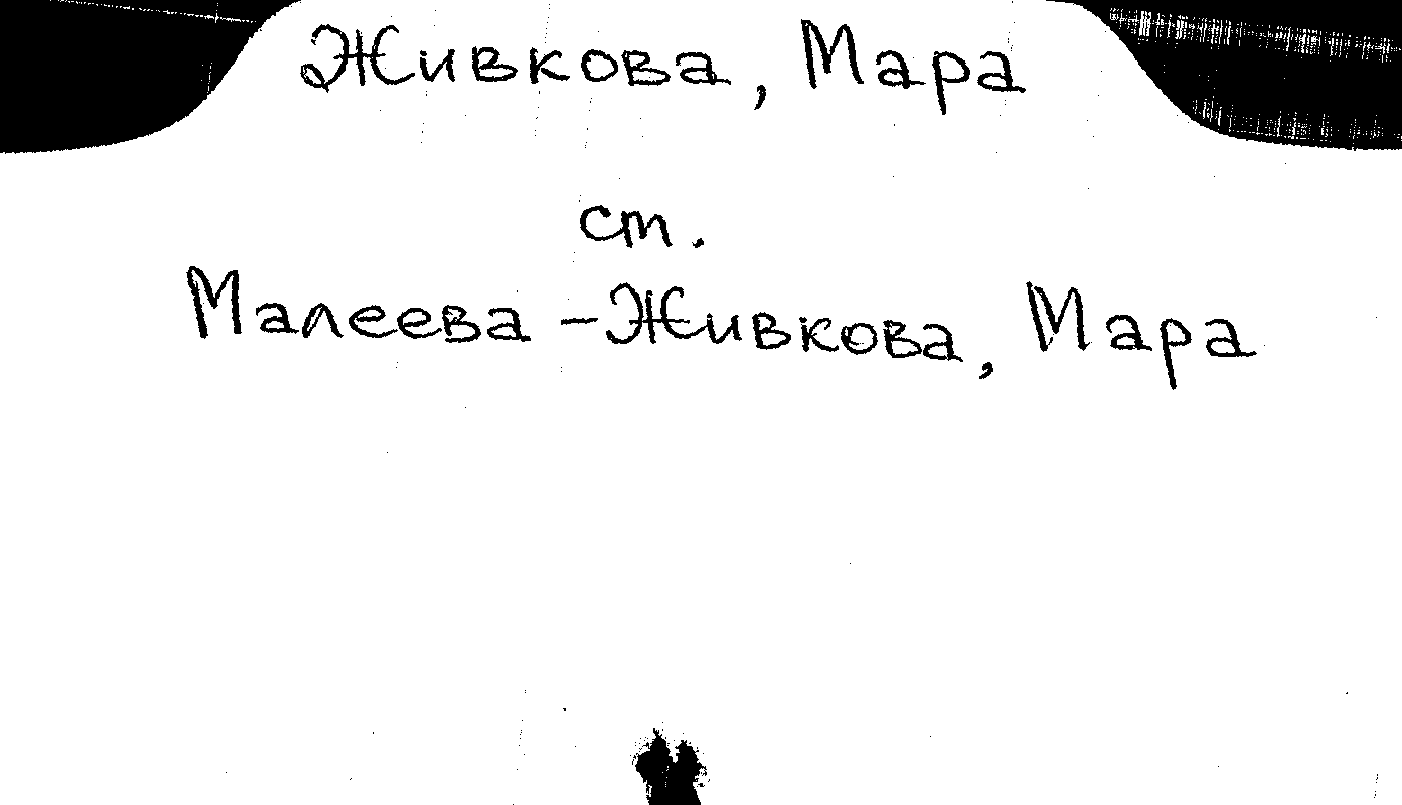 Живкова, Мара
ст.
Малеева - Живкова, Мара